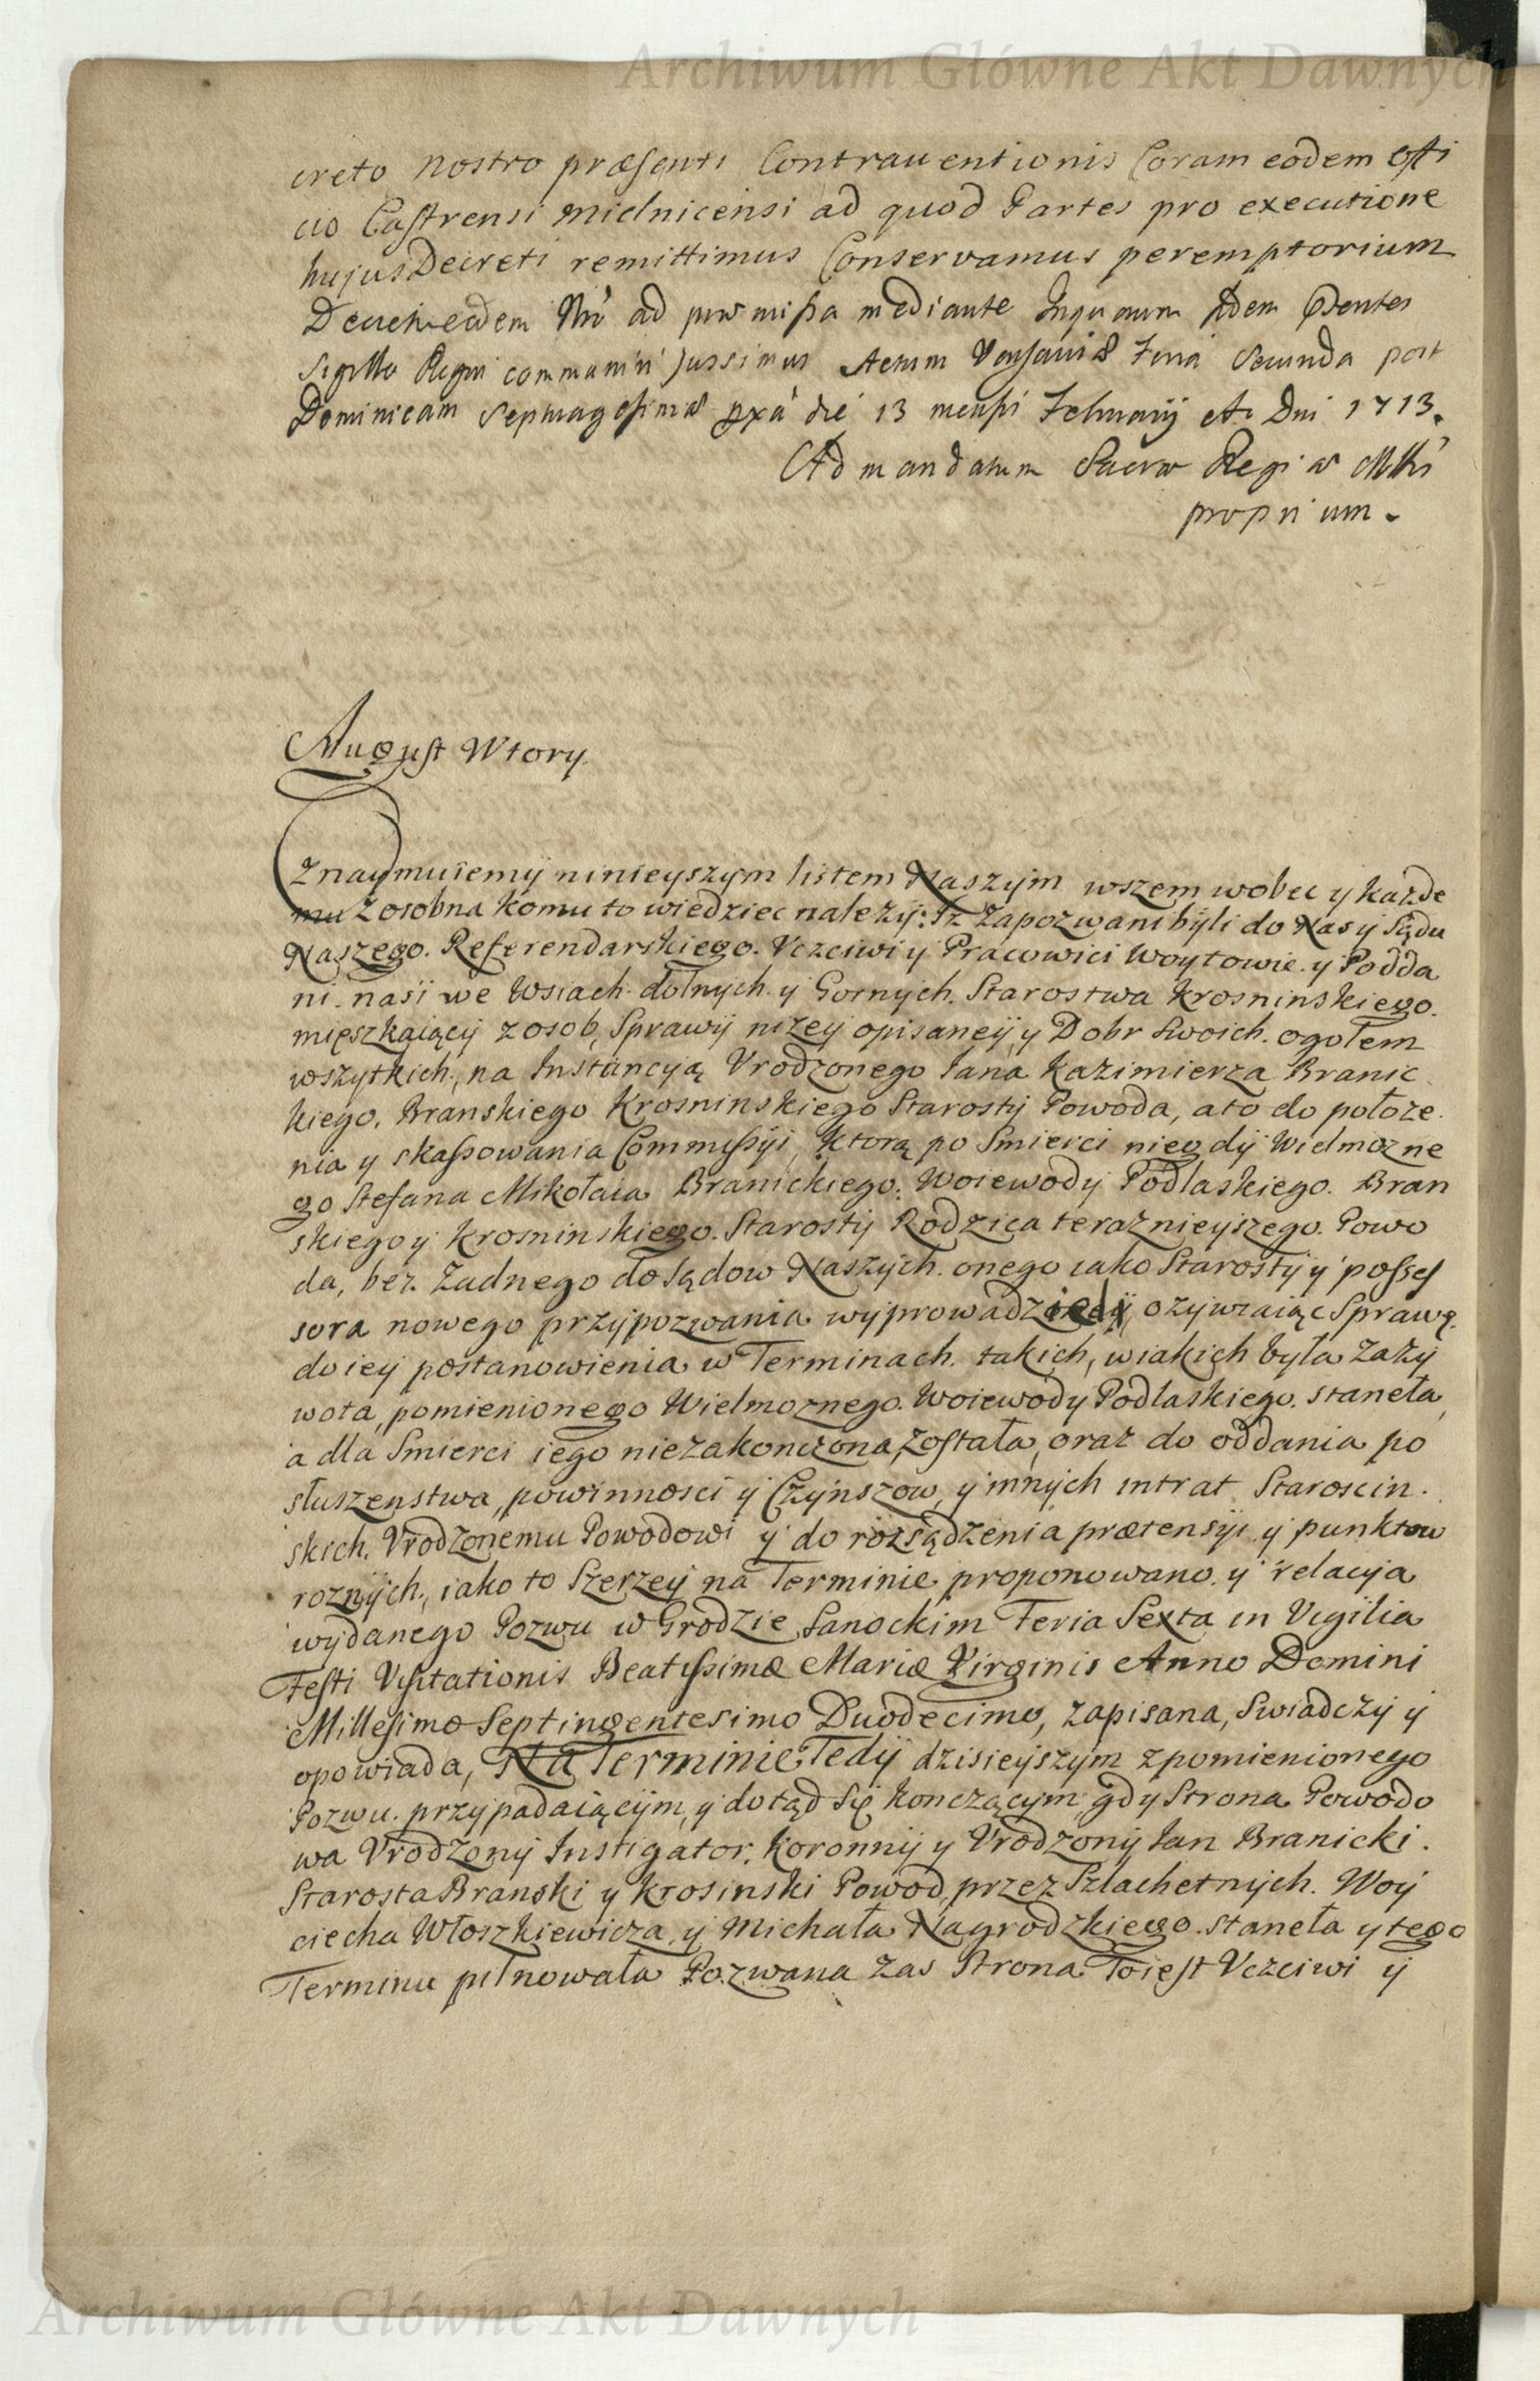 Archiwum Główne Akt Dawnych
creto nostro præsenti Contraventionis Coram eodem Offi
cio Castrensi Mielnicensi ad quod Partes pro executione
hujus Decreti remittimus Conservamus peremptorium
mediante
Sigillo Regni communiri jussimus Actum Varsaviæ Feria Secunda post
Dominicam Septuagesimæ pxa die 13 mensis Februarij A. Dni 1713.
Ad mandatum Sacræ Regiæ Mttis
proprium.
August Wtory
Oznaymuiemy ninieyszym listem Naszym wszem wobec y każde
mu zosobna komu to wiedziec należy: Iz Zapozwani byli do Nas y Sądu
Naszego. Referendarskiego. Vczciwi y Pracowici Woytowie. y Podda
ni nasi we Wsiach dolnych y Gornych. Starostwa Krosninskiego.
mięszkaiący z osob, Sprawy niżey opisaney, y Dobr swoich. ogołem
wszytkich, na Instancyą Vrodzonego Jana Kazimierza Branic
kiego. Branskiego Krosninskiego Starosty Powoda, a to do położe
nia y skassowania Commissyi, ktorą po Smierci niegdy Wielmożne
go Stefana Mikołaia Branickiego. Woiewody Podlaskiego. Bran
skiego y Krosninskiego. Starosty Rodzica teraznieyszego. Powo
da, bez żadnego do Sądow Naszych. onego iako Starosty y posses
sora nowego przypozwania wyprowadzieli, ożywiaiąc Sprawę.
do iey postanowienia w Terminach. takich, w iakich była zaży
wota, pomienionego Wielmożnego. Woiewody Podlaskiego. staneła,
a dla Smierci iego niezakonczona, została, oraz do oddania po
słuszenstwa, powinnosci y Czynszow, y innych intrat Staroscin.
skich. Vrodzonemu Powodowi y do rozsądzenia prætensyi y punktow
roznych, iako to Szerzey na Terminie proponowano. y relacya
wydanego Pozwu w Grodzie Sanockim Feria Sexta in Vigilia
Festi Visitationis Beatissimæ Mariæ Virginis Anno Domini
Millesimo Septingentesimo Duodecimo, zapisana, Swiadczy y
opowiada, Na Terminie Tedy dzisieyszym z pomienionego
Pozwu. przypadaiącym, y dotąd się konczącym gdy Strona Powodo
wa Vrodzony Instigator. Koronny y Vrodzony Ian Branicki.
Starosta Branski y Krosinski Powod, przez Szlachetnych. Woy
ciecha Włoszkiewicza, y Michała Nagrodzkiego. staneła y tego
Terminu pilnowała Pozwana zas Strona Toiest Vczciwi y
Archiwum Główne Akt Dawnych